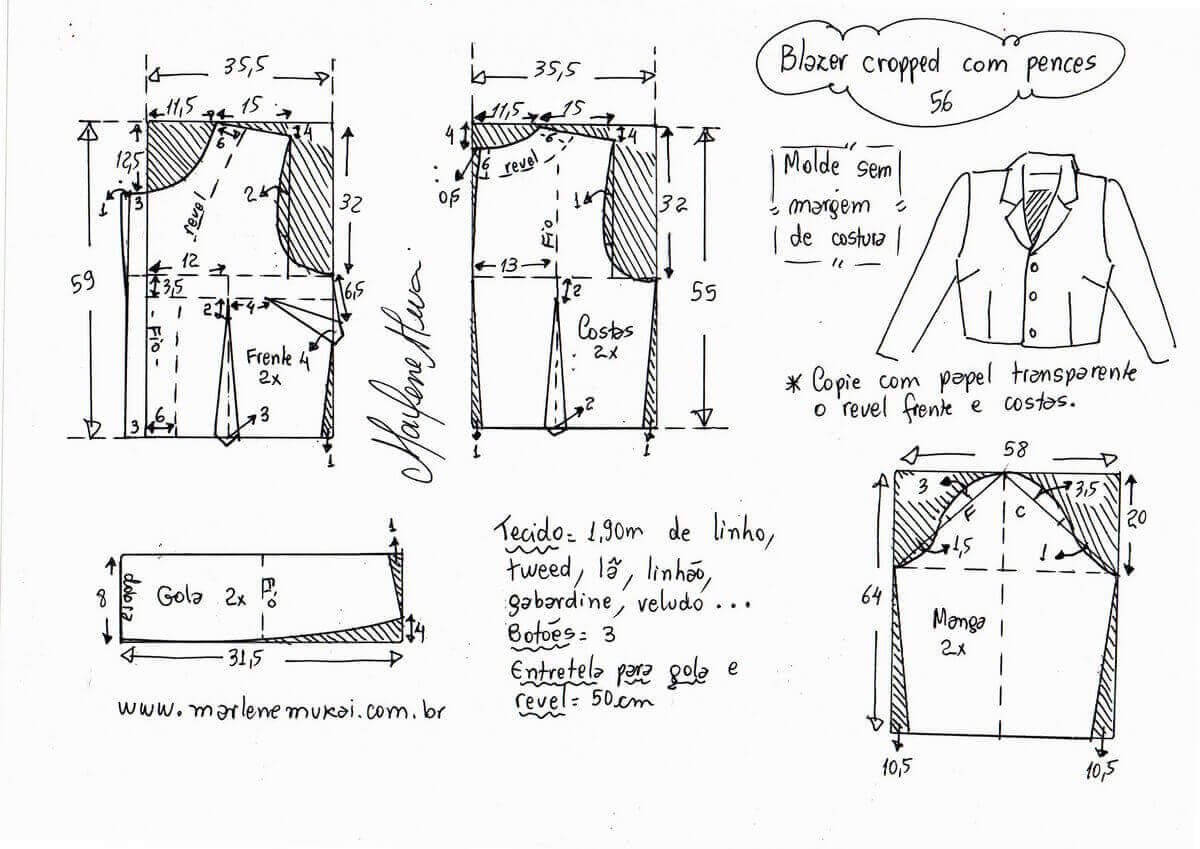 Blazer cropped com pences
56
35,5
11,5
15
4
12,5
6
1
3
revel
2
32
59
12
3,5
6,5
2
4
Fio
Frente 4
2x
3
3
6
1
35,5
11,5
15
4
4
6
6
revel
0,5
1
32
Fio
13
2
55
Costas
2x
2
1
1
Marlene Mukai
Molde sem
margém
de costura
* Copie com papel transparente
o revel frente e costas.
58
3
3,5
F
C
20
1,5
1
64
Manga
2x
10,5
10,5
1
8
dobra
Gola 2x
Fio
4
31,5
www.marlenemukai.com.br
Tecido= 1,90m de linho,
tweed, lã, linhão,
gabardine, veludo ...
Botões= 3
Entretela para gola e
revel= 50cm